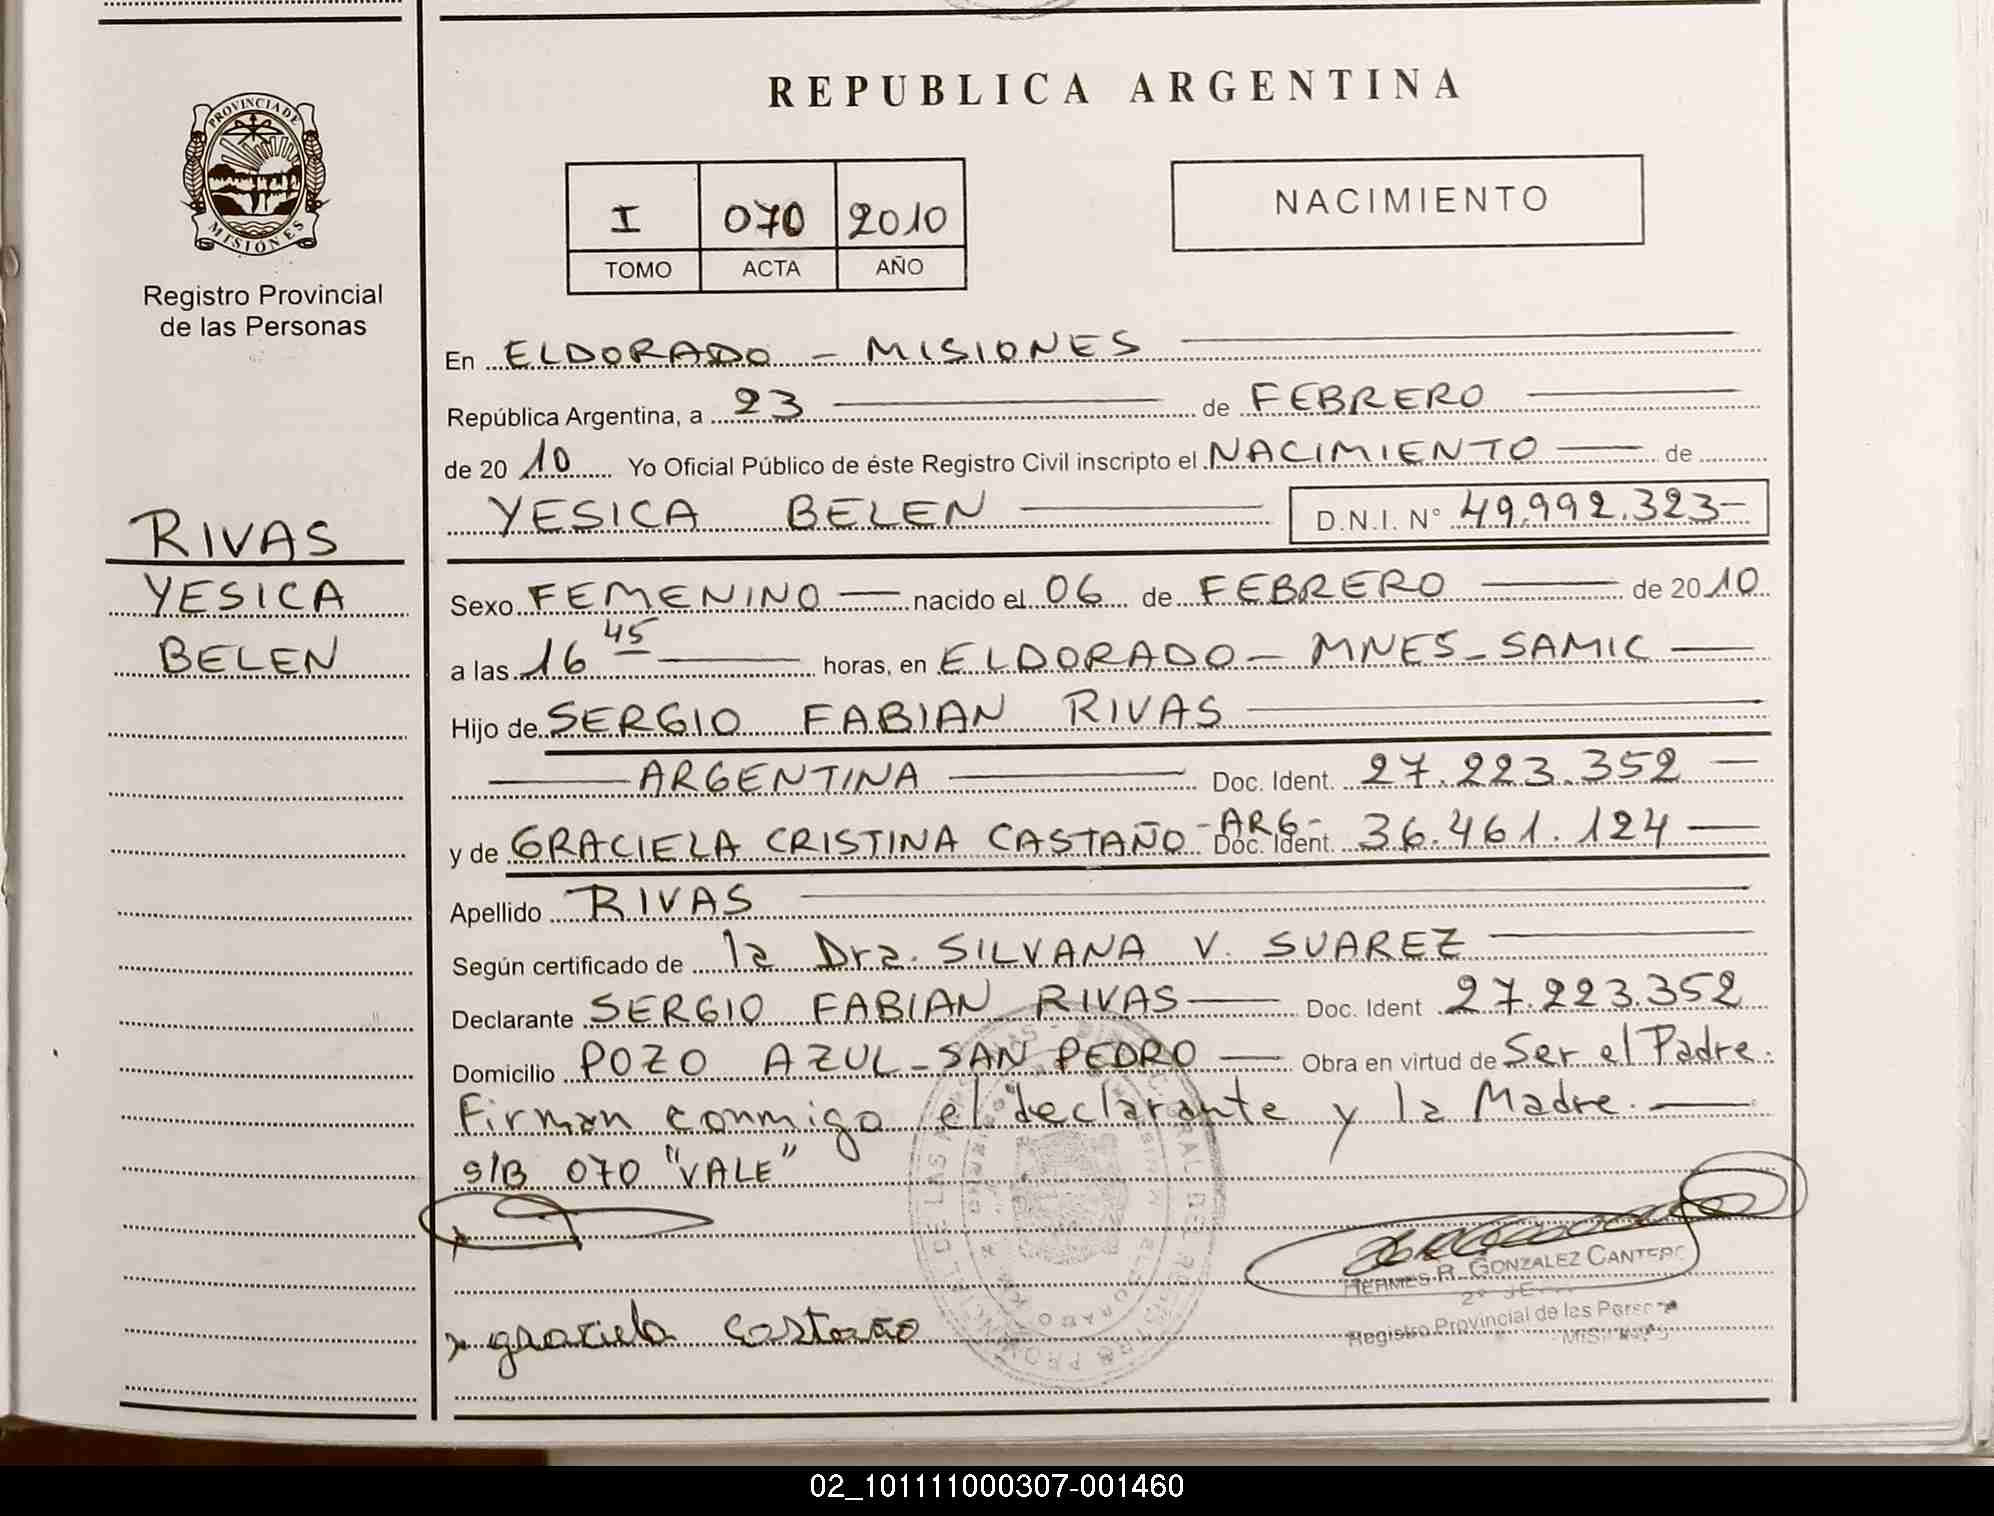 REPUBLICA ARGENTINA
PROVINCIA DE
MISIONES
Registro Provincial
de las Personas
I 070 2010
TOMO ACTA AÑO
NACIMIENTO
En ELDORADO - MISIONES
República Argentina, a 23 de FEBRERO
de 20 10 Yo Oficial Público de éste Registro Civil inscripto el NACIMIENTO de
YESICA BELEN D.N.I. N° 49.992.323-
RIVAS
YESICA
BELEN
Sexo FEMENINO nacido el 06 de FEBRERO de 2010
a las 16 45 horas, en ELDORADO - MNES - SAMIC
Hijo de SERGIO FABIAN RIVAS
ARGENTINA Doc. Ident. 27.223.352
y de GRACIELA CRISTINA CASTAÑO -ARG- Doc. Ident. 36.461.124
Apellido RIVAS
Según certificado de la Dra. SILVANA V. SUAREZ
Declarante SERGIO FABIAN RIVAS Doc. Ident 27.223.352
Domicilio POZO AZUL - SAN PEDRO Obra en virtud de Ser el Padre.
Firman conmigo el declarante y la Madre.
S/B 070 "VALE"
HERMES R. GONZALEZ CANTERO
Registro Provincial de las Personas
MISIONES
x graciela Castaño
02_101111000307-001460